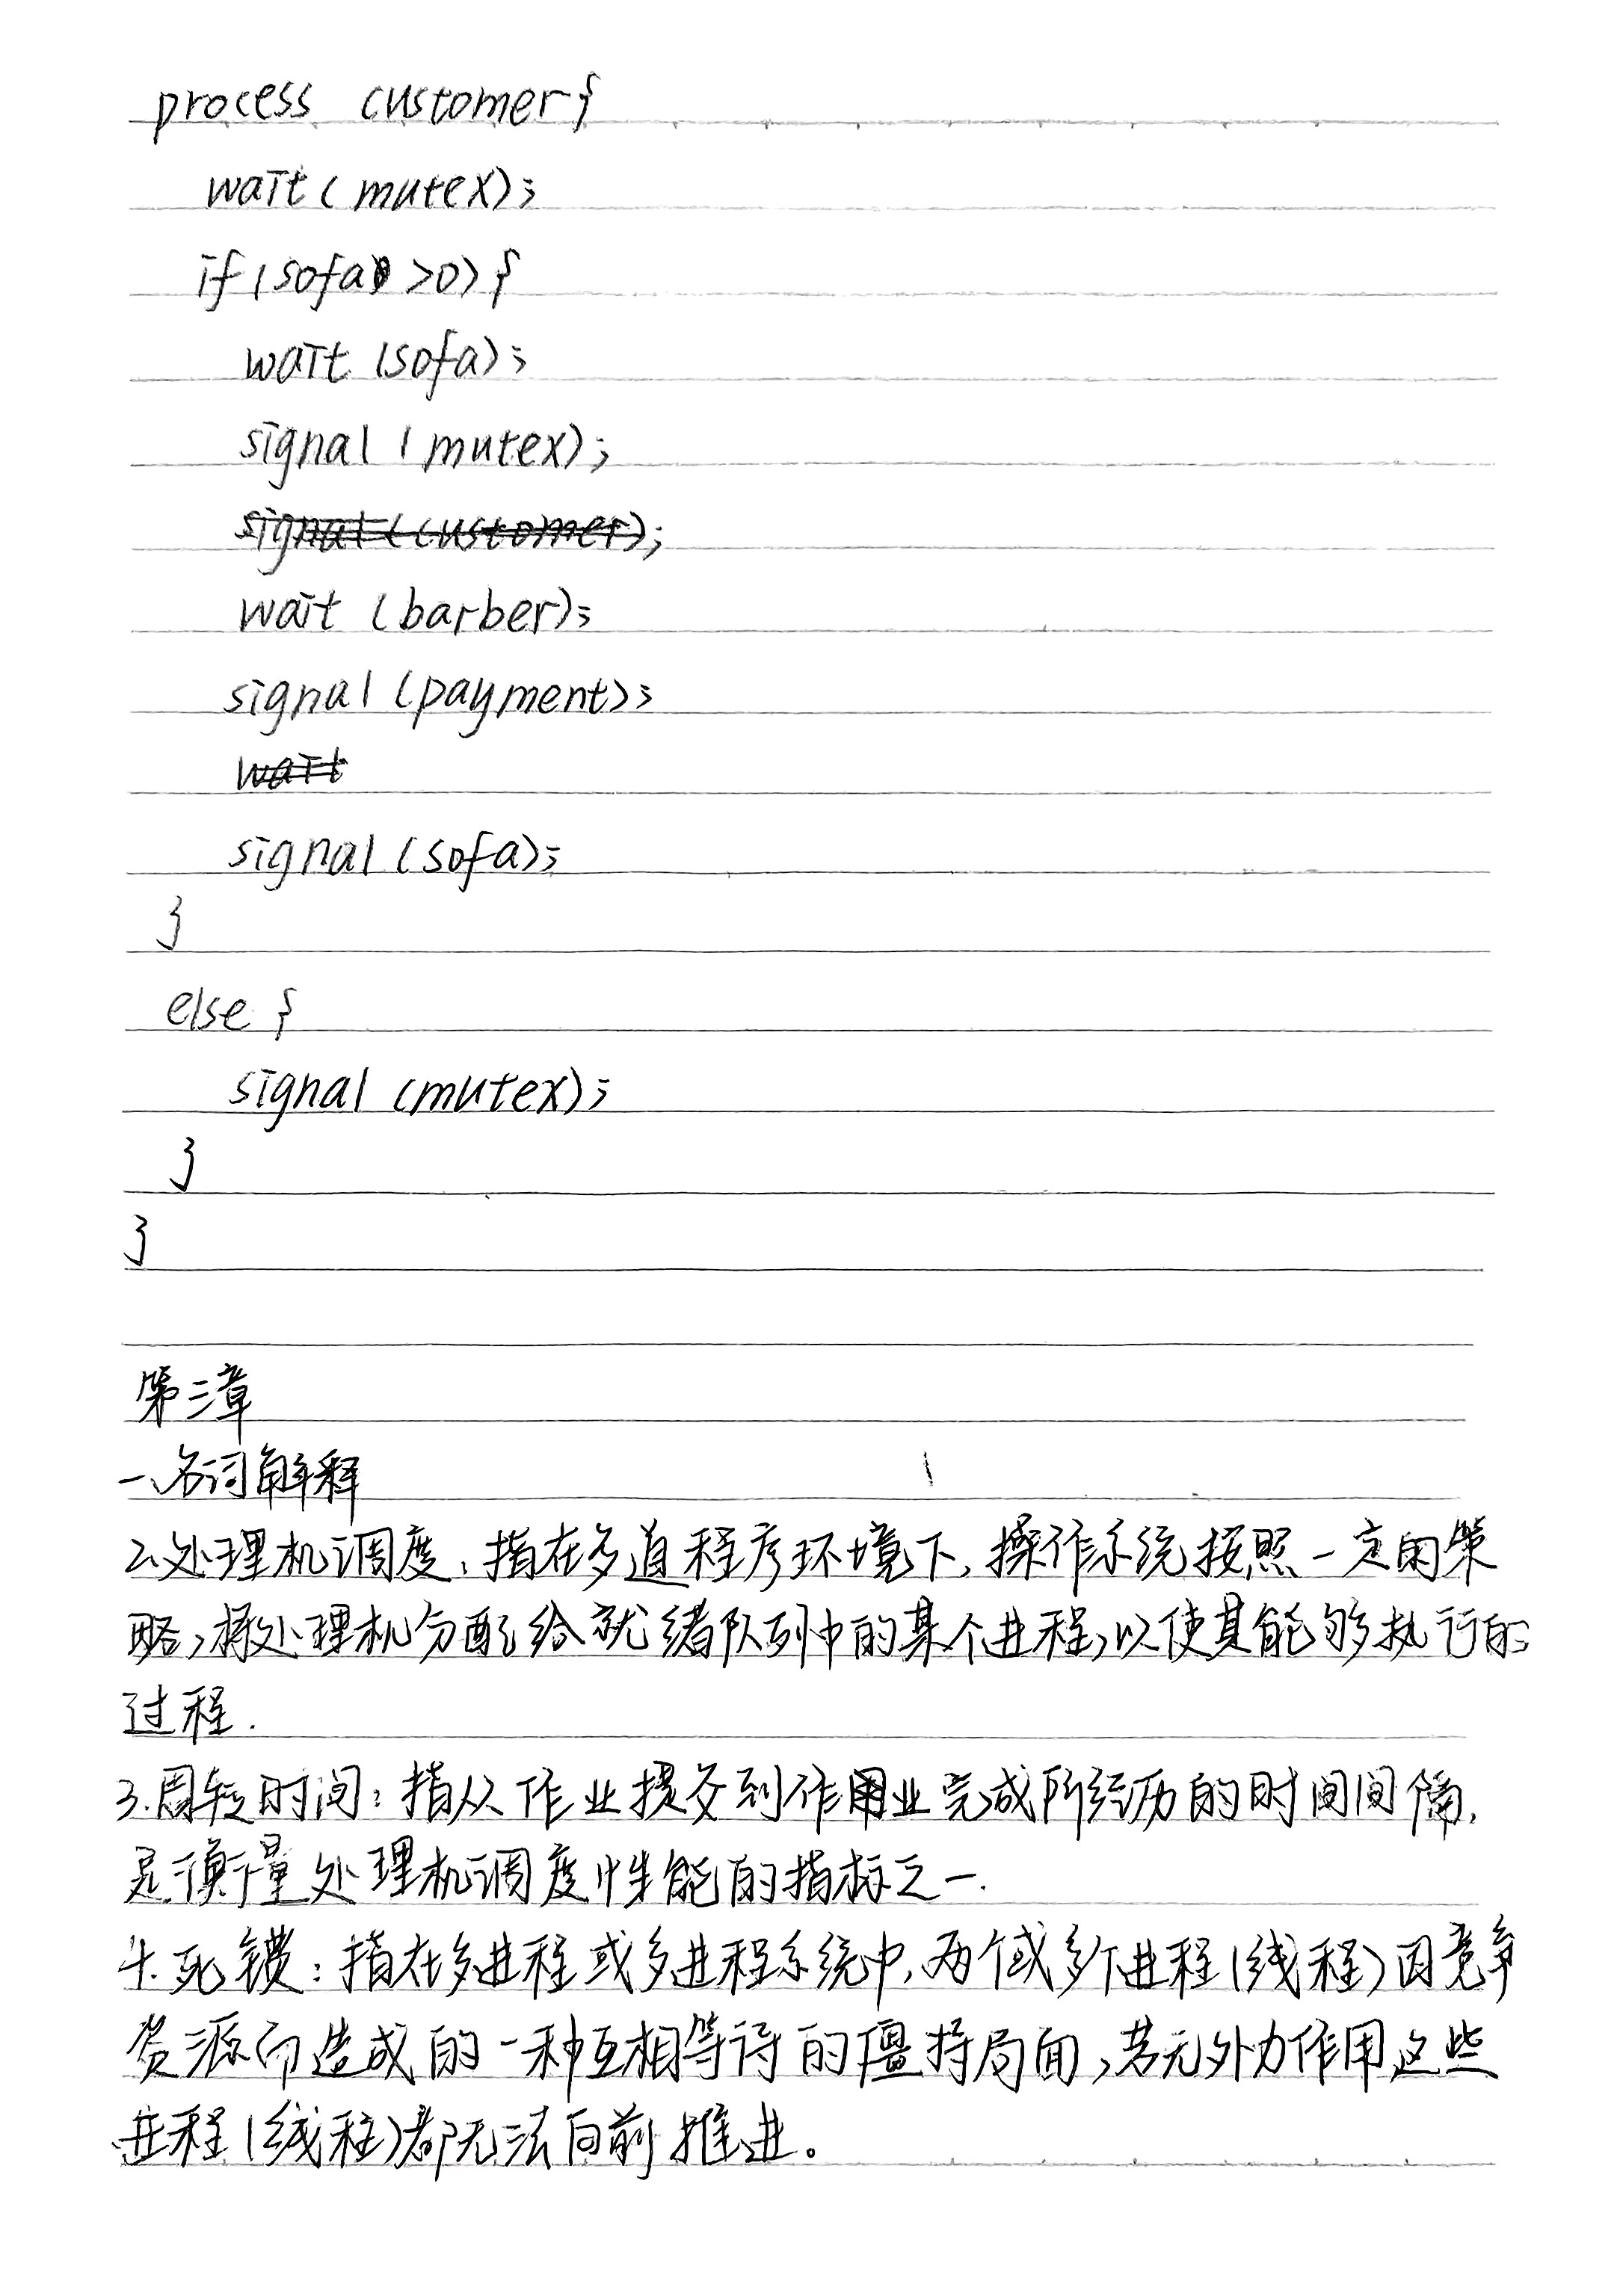 process customer{
wait(mutex);
if(sofa >0){
wait(sofa);
signal(mutex);
signal(customer);
wait(barber);
signal(payment);
wait
signal(sofa);
}
else{
signal(mutex);
}
}
第三章
一、名词解释
2.处理机调度:指在多道程序环境下,操作系统按照一定的策
略,将处理机分配给就绪队列中的某个进程,以使其能够执行的
过程.
3.周转时间:指从作业提交到作业完成所经历的时间间隔,
是衡量处理机调度性能的指标之一.
4.死锁:指在多进程或多进程系统中,两个或多个进程(线程)因竞争
资源而造成的一种互相等待的僵持局面,若无外力作用,这些
进程(线程)都无法向前推进。